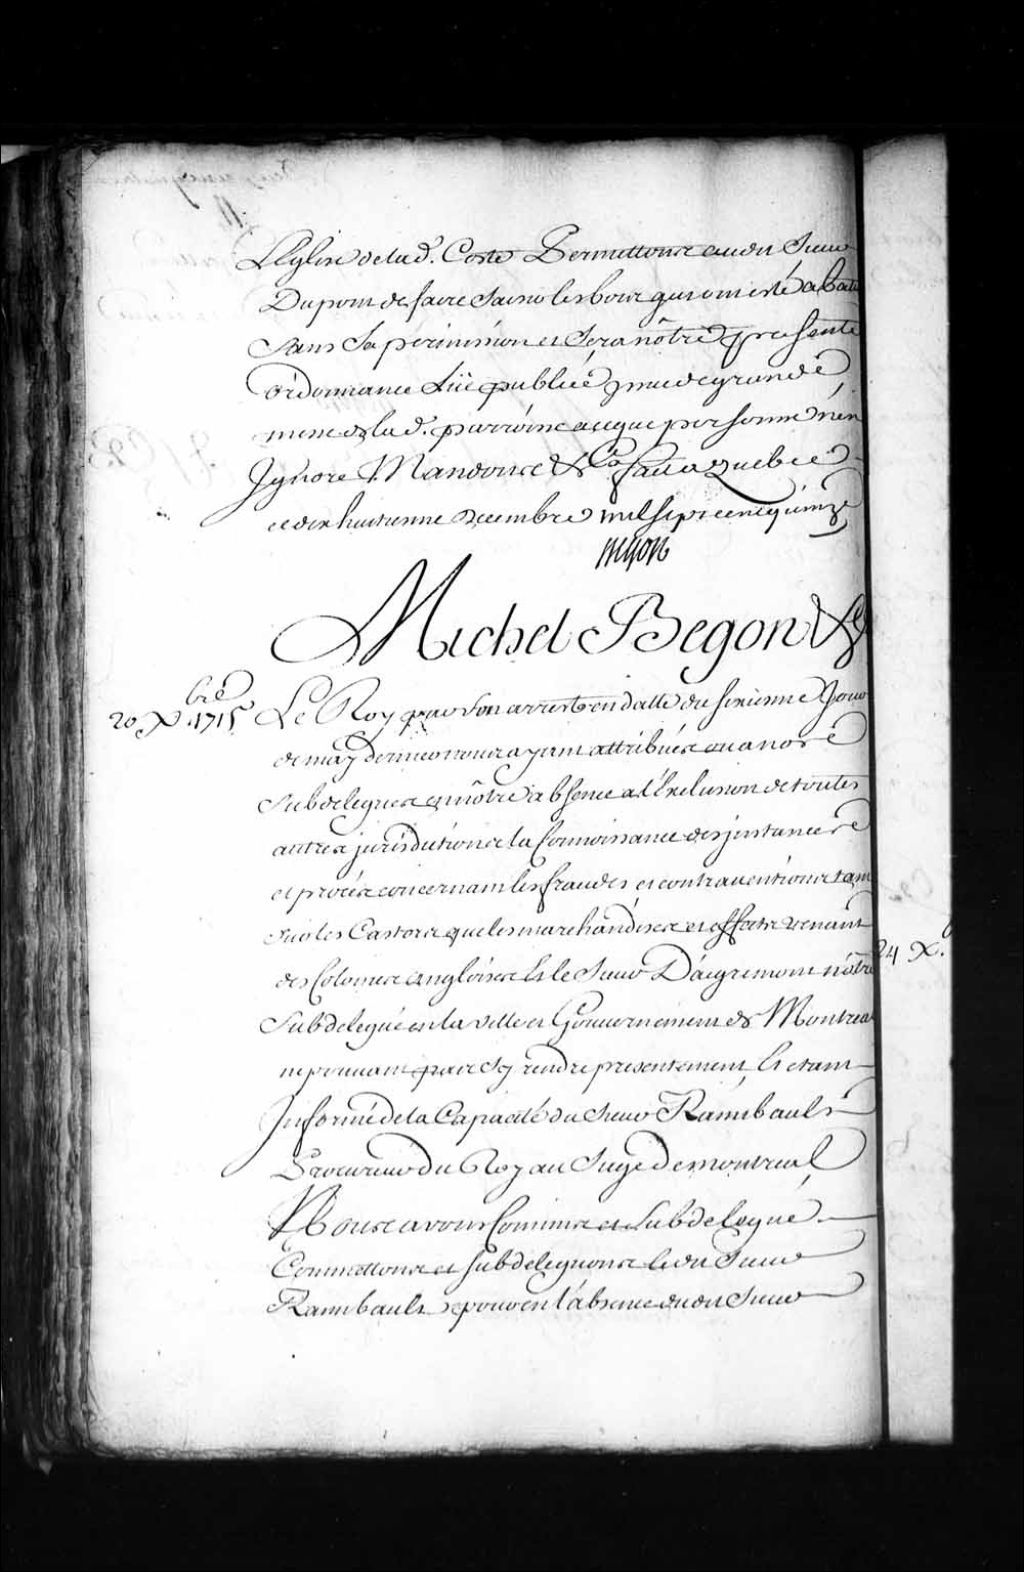 L'Eglise de lad. Coste Permettons aud. Sieur
Dupont de faire Saisir les bois qui ont esté abatu
Sans Sa permission et Sera nôtre presente
ordonnance Lüe publiée issue de grande
messe de lad. parroisse a ce que personne n'en
Ignore Mandons &c.a fait a Quebec
ce dix huitieme decembre mil sept cent quinze
Begon
Michel Begon &c
bre
20 X. 1715 Le Roy par son arrest en datte du sixieme Jour
de may dernier nous ayant attribué et a nos
Subdelegués en nôtre absence a l'Exclusion de toutes
autres jurisdictions la Connoissance des jnstances
et procés concernant les fraudes et contraventions tant
sur les Castors que les marchandises et effects venant
des Colonies angloises Et le Sieur D'aigremont nôtre
Subdelegué en la ville et Gouvernement de Montreal
ne pouvant pas s'y rendre presentement, Et etant
Informé de la Capacité du Sieur Raimbault
Procureur du Roy au Siege de montreal
Nous avons Commis et Subdelegué
Commettons et subdeleguons led. Sieur
Raimbault pour en l'absence dud. Sieur
24 X.